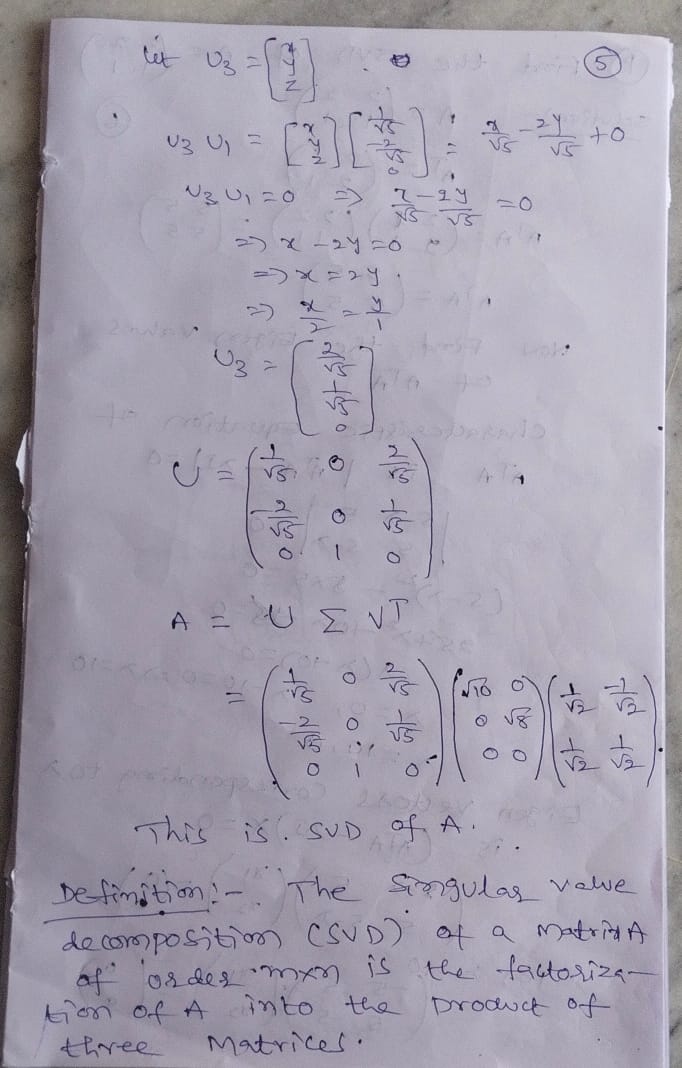 let U3 = [x y z]
5
U3 U1 = [x y z] [1/√5 -2/√5 0] = x/√5 - 2y/√5 + 0
U3 U1 = 0 ⇒ x/√5 - 2y/√5 = 0
⇒ x - 2y = 0
⇒ x = 2y
⇒ x/2 = y/1
U3 = [2/√5 1/√5 0]
U = ( 1/√5 0 2/√5
-2/√5 0 1/√5
0 1 0 )
A = U Σ VT
= ( 1/√5 0 2/√5 ) ( √10 0 ) ( 1/√2 -1/√2 )
( -2/√5 0 1/√5 ) ( 0 √8 ) ( 1/√2 1/√2 )
( 0 1 0 ) ( 0 0 )
This is SVD of A.
Definition:- The Singular value
decomposition (SVD) of a matrix A
of order mxn is the factoriza-
tion of A into the product of
three Matrices.